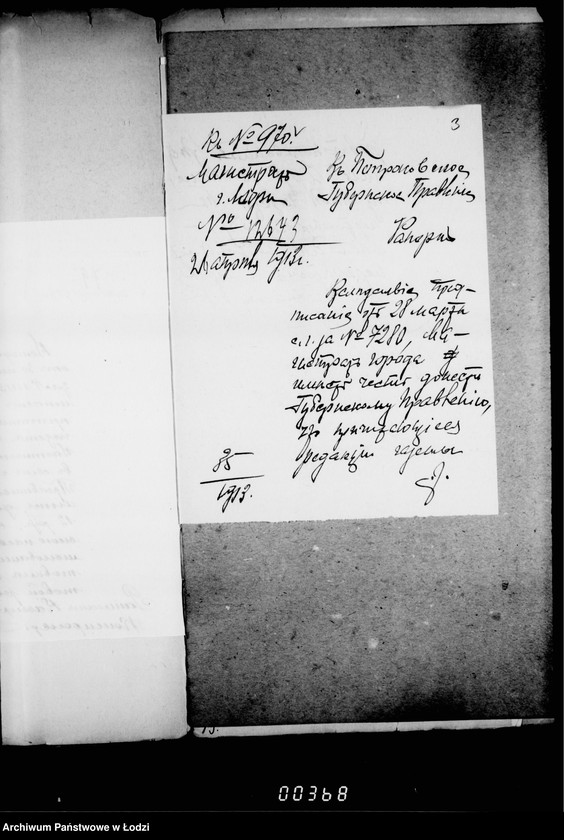 3
Къ № 970.
Магистратъ
г. Лодзи
№ 12643
26 апрѣля 1913 г.
Въ Петроковское
Губернское Правленіе
Рапортъ
Вслѣдствіе пред-
писанія отъ 28 марта
с. г. за № 7280, Ма-
гистратъ города
имѣетъ честь донести
Губернскому Правленію,
что причитающіеся
редакціи газеты
85
1913.
00368
Archiwum Państwowe w Łodzi